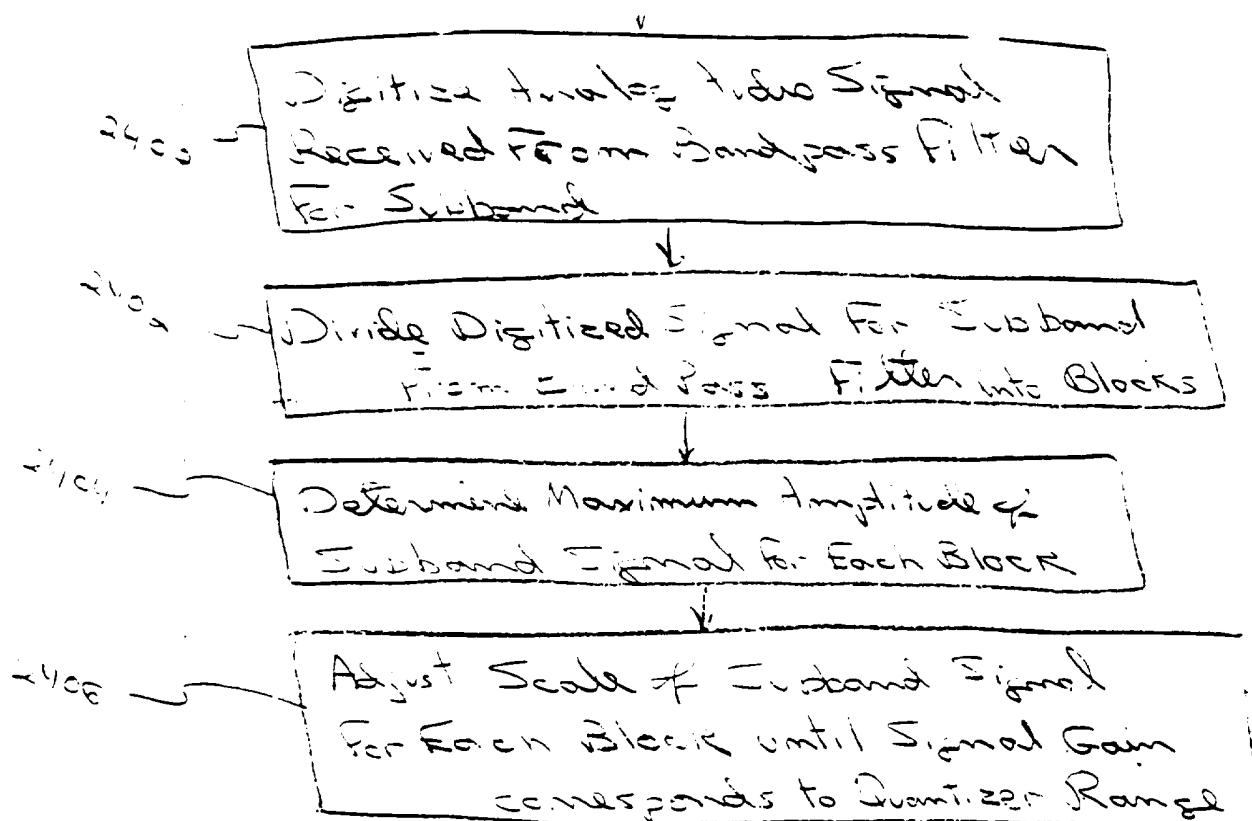 2400
Digitize Analog Audio Signal
Received From Bandpass Filter
For Subband
2402
Divide Digitized Signal For Subband
From Band Pass Filter into Blocks
2404
Determine Maximum Amplitude of
Subband Signal For Each Block
2406
Adjust Scale of Subband Signal
For Each Block until Signal Gain
corresponds to Quantizer Range